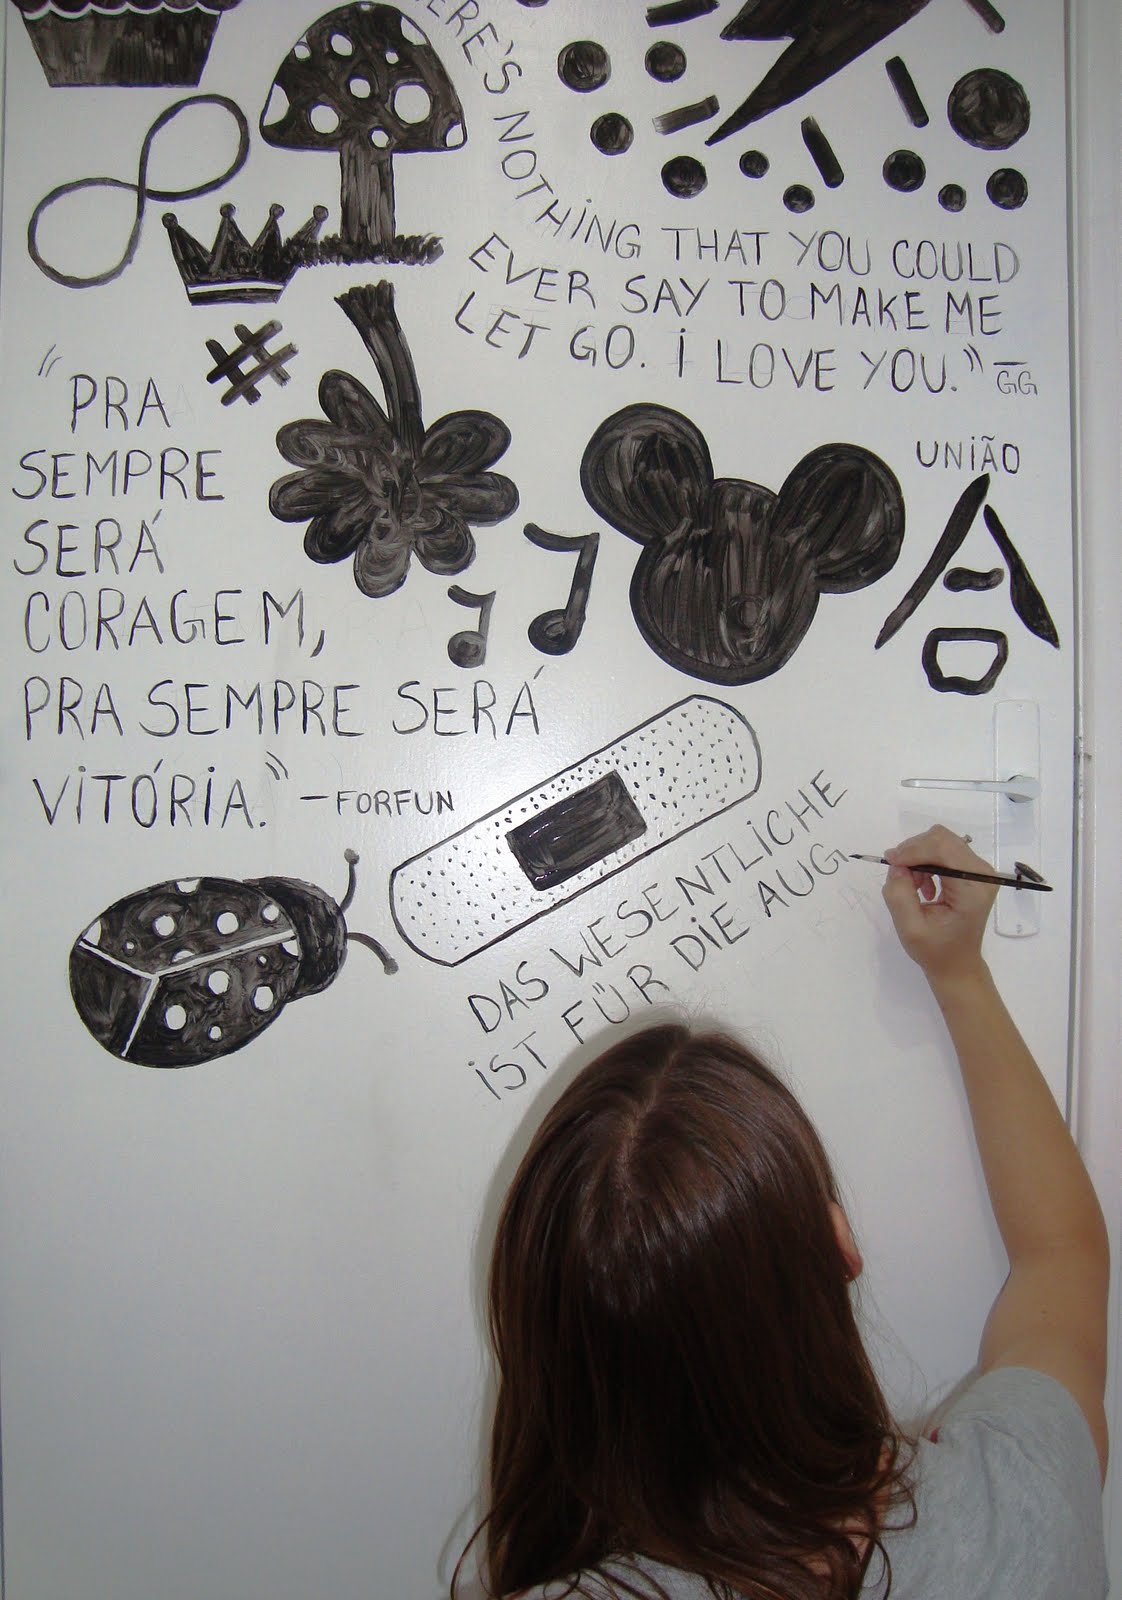 HERE'S NOTHING THAT YOU COULD
EVER SAY TO MAKE ME
LET GO. I LOVE YOU." GG
#
"PRA
SEMPRE
SERÁ
CORAGEM,
PRA SEMPRE SERÁ
VITÓRIA." - FORFUN
UNIÃO
DAS WESENTLICHE
IST FÜR DIE AUG